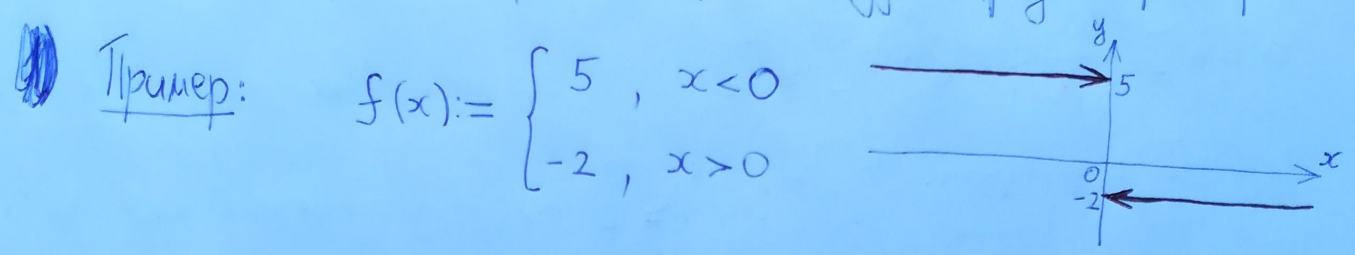 Пример: f(x):= { 5 , x<0
-2 , x>0
y
5
x
0
-2